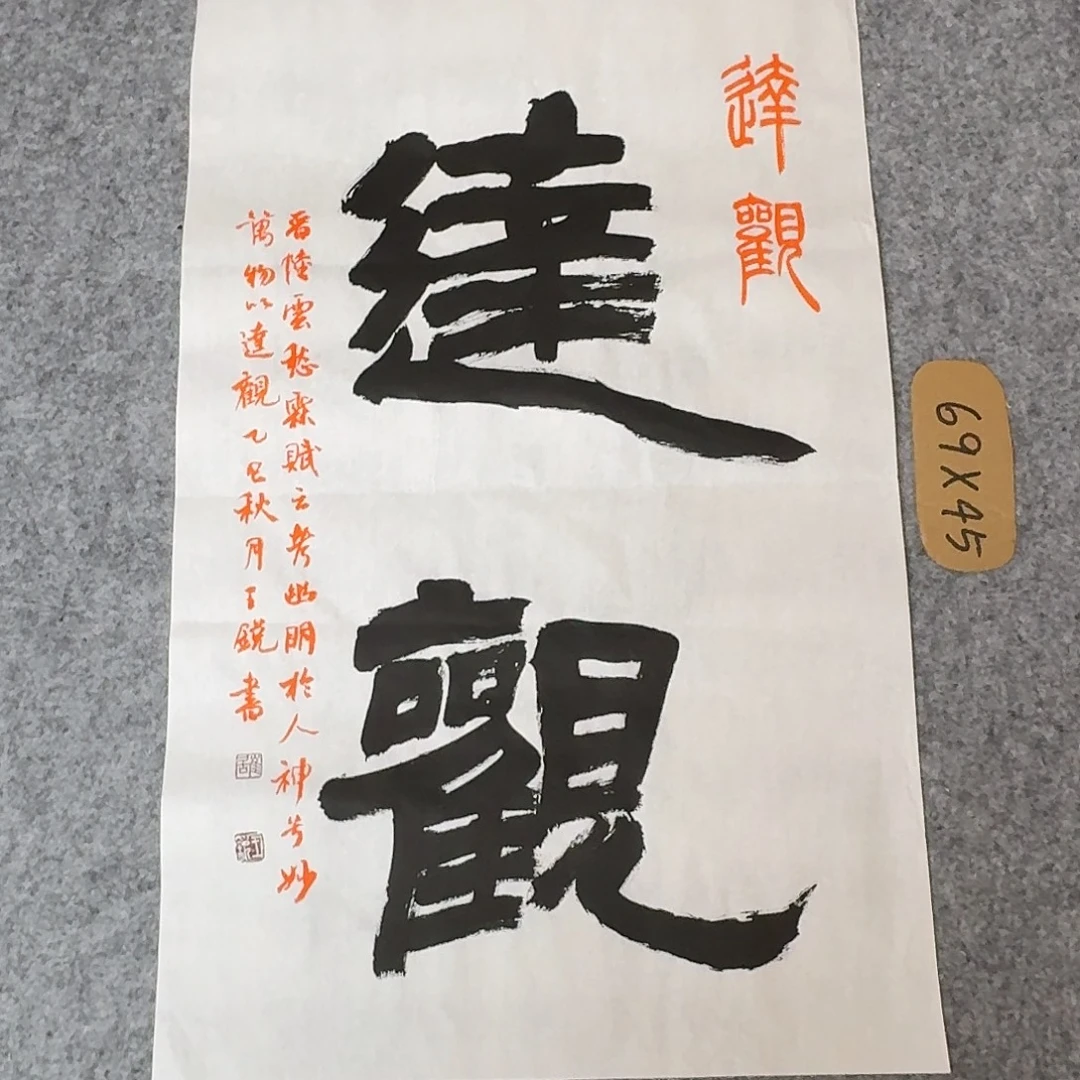 達觀
達觀
晉陸雲愁霖賦云考幽明於人神兮妙
萬物以達觀乙巳秋月丁銳書
69X45